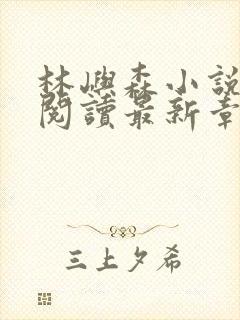 林嶼森小說
閱讀最新章
三上夕希